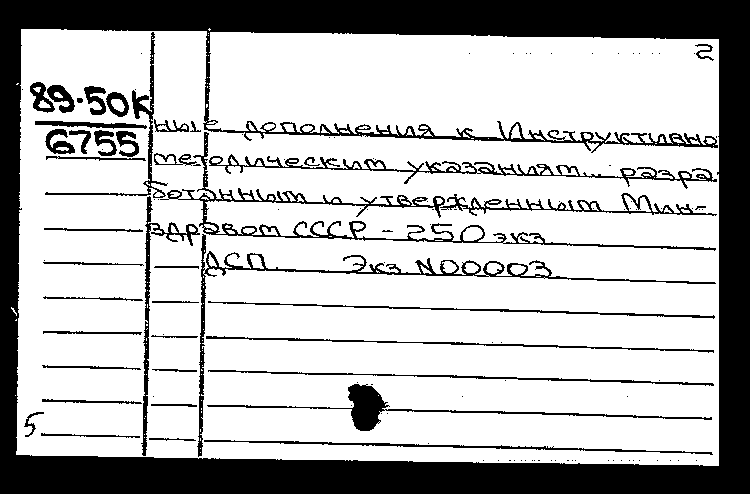 2
89-50К
6755
ные дополнения к Инструктивно
методическим указаниям... разра-
ботанным и утвержденным Мин-
здравом СССР - 250 экз
ДСП Экз N00003
5